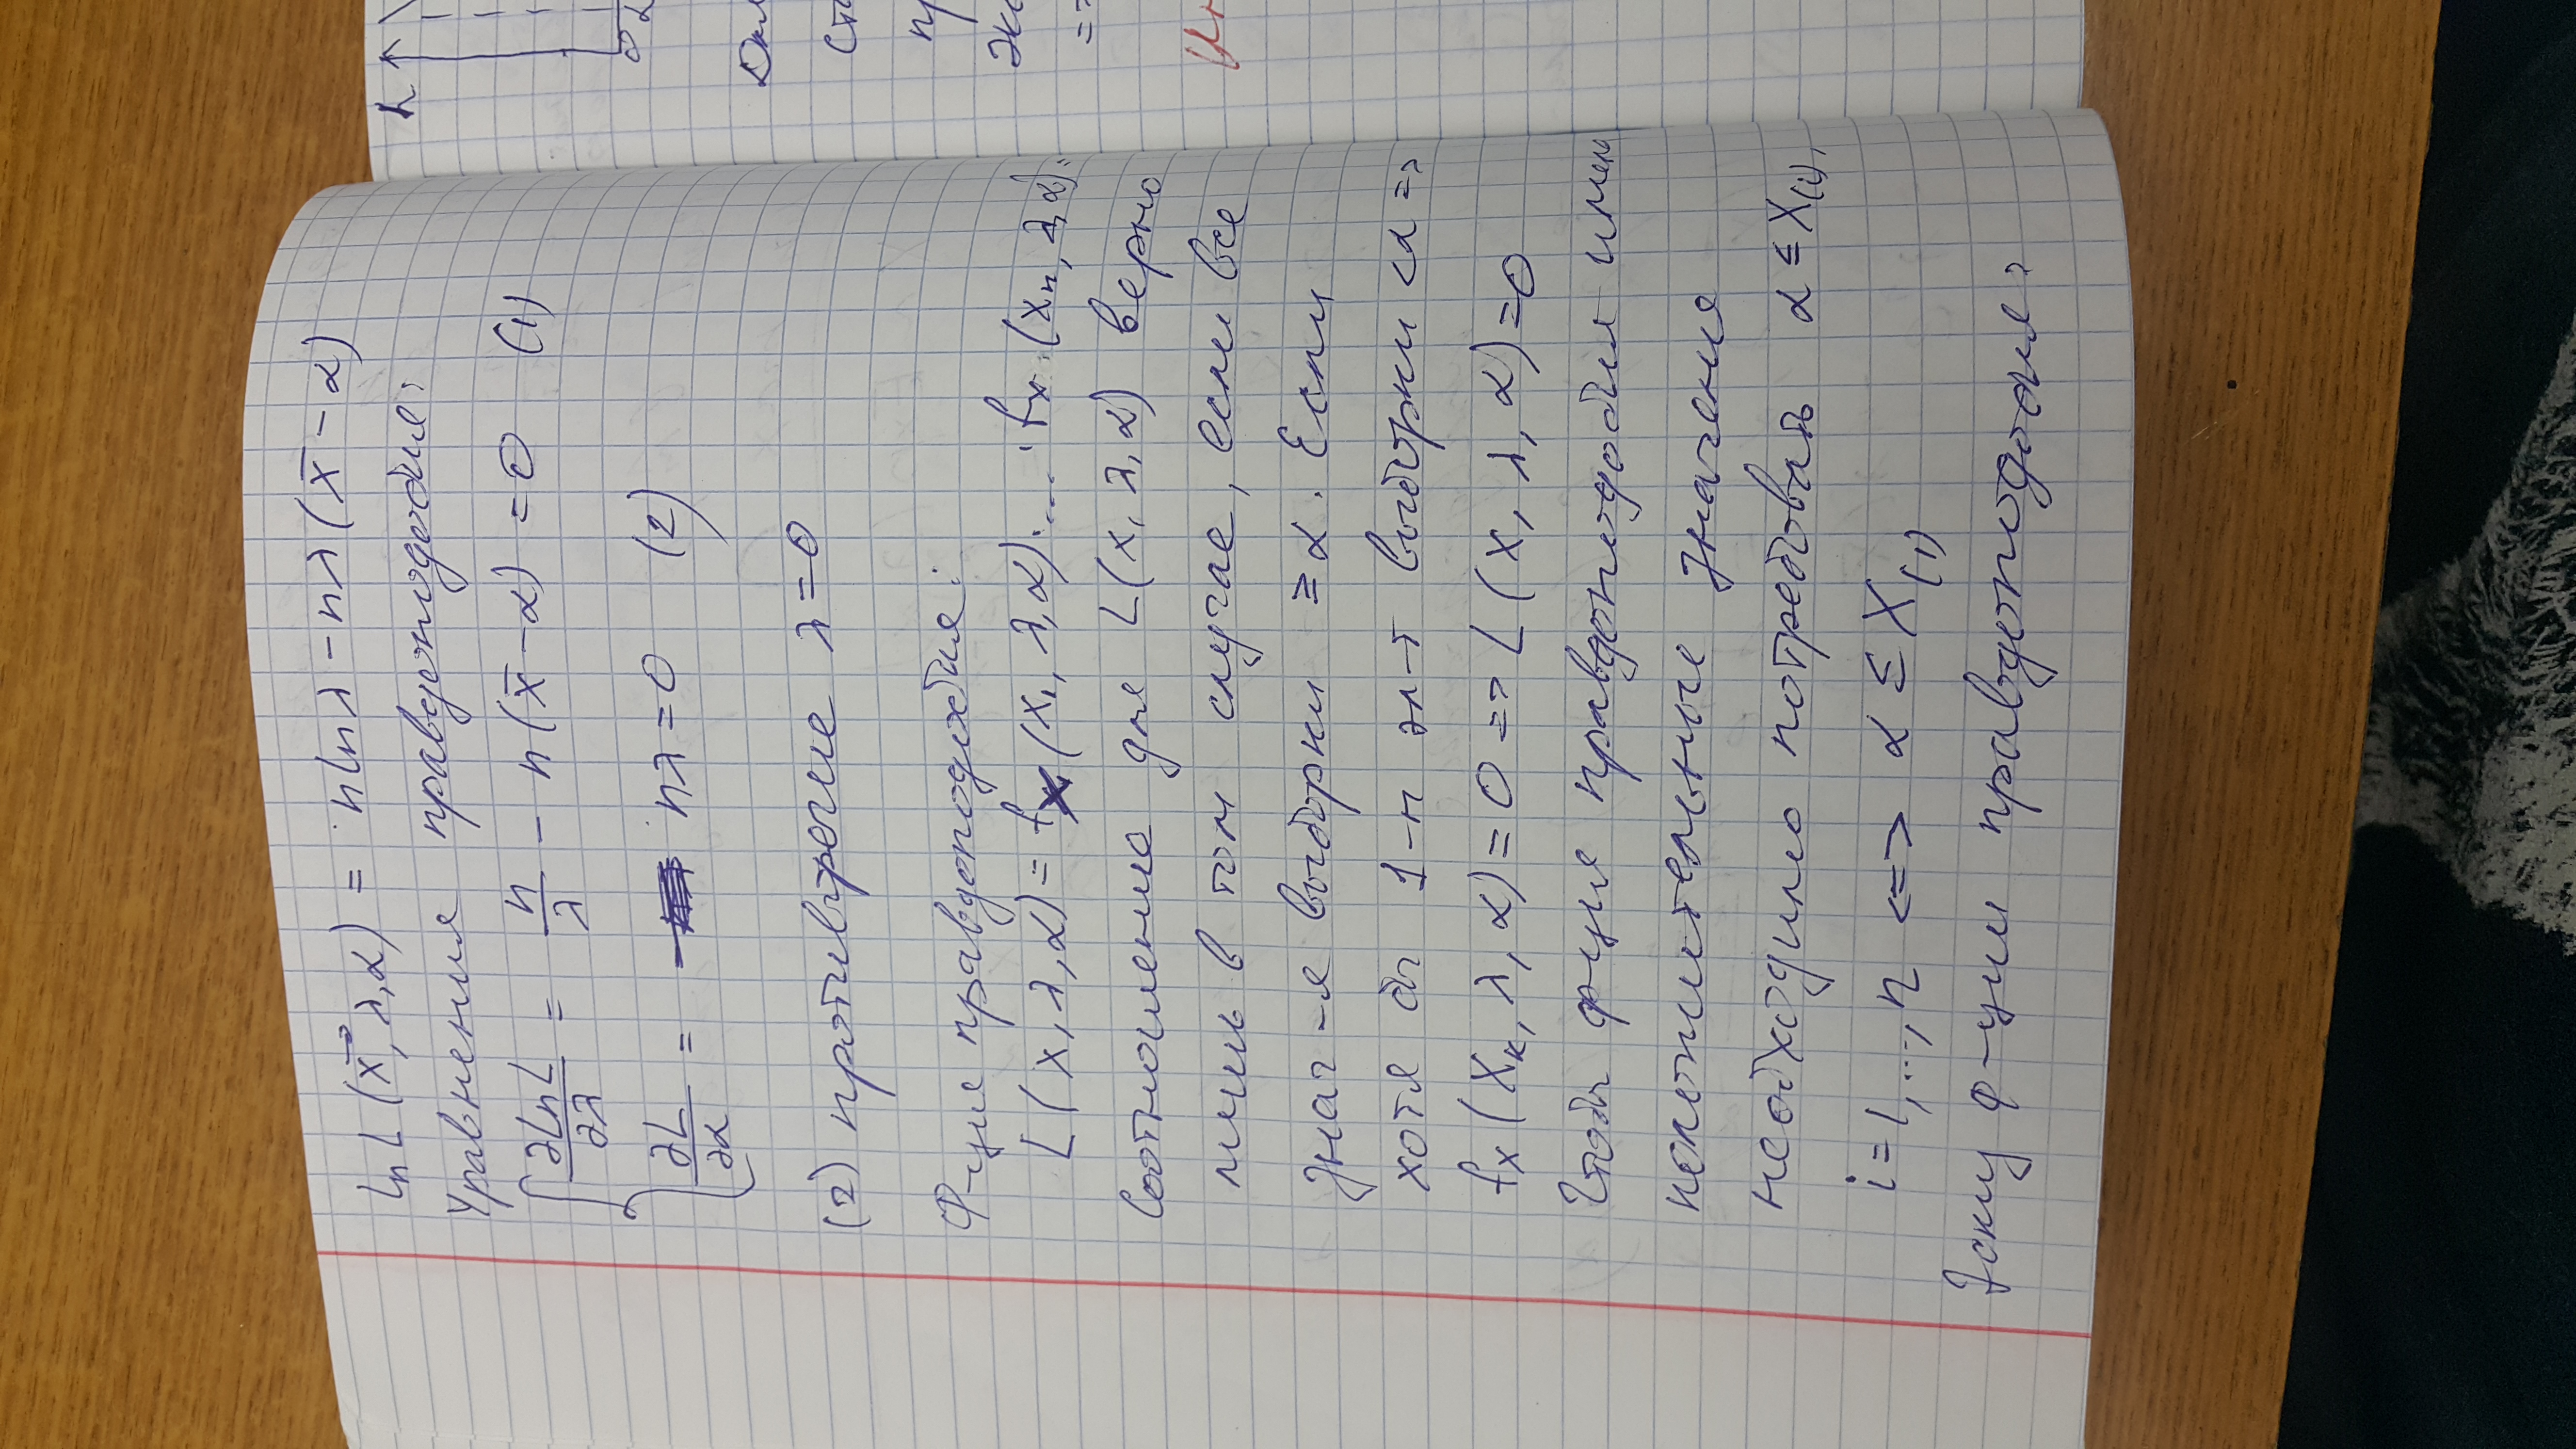 Ln L (x⃗, λ, α) = n ln λ − nλ (x̄ − α)
Уравнения правдоподобия:
∂LnL/∂λ = n/λ − n(x̄ − α) = 0 (1)
∂L/∂α = nλ = 0 (2)
(2) противоречие λ = 0
Ф-ция правдоподобия:
L(x, λ, α) = fx (x₁, λ, α)·...·fx (xn, λ, α) =
Соотношение для L(x, λ, α) верно
лишь в том случае, если все
знач-я выборки ≥ α. Если
хотя бы 1-н эл-т выборки < α =>
fx (Xк, λ, α) = 0 => L (x, λ, α) = 0
Чтобы ф-ция правдоподобия имела
положительные значения
необходимо потребовать α ≤ X(i),
i = 1,...,n <=> α ≤ X(1)
Эскиз ф-ции правдоподобия:
L
0 α
пр
=>